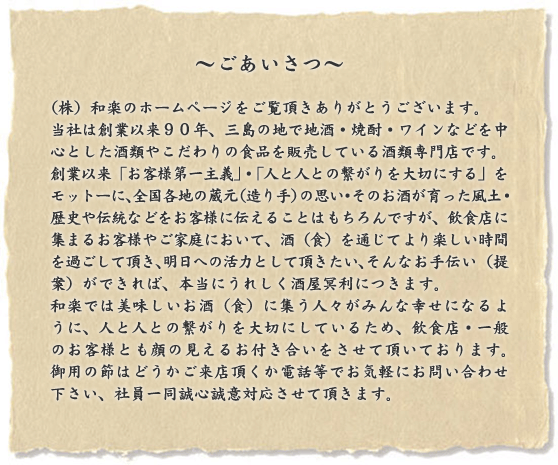 ～ごあいさつ～
(株) 和楽のホームページをご覧頂きありがとうございます。
当社は創業以来９０年、三島の地で地酒・焼酎・ワインなどを中
心とした酒類やこだわりの食品を販売している酒類専門店です。
創業以来「お客様第一主義」・「人と人との繋がりを大切にする」を
モットーに、全国各地の蔵元(造り手)の思い・そのお酒が育った風土・
歴史や伝統などをお客様に伝えることはもちろんですが、飲食店に
集まるお客様やご家庭において、酒（食）を通じてより楽しい時間
を過ごして頂き、明日への活力として頂きたい、そんなお手伝い（提
案）ができれば、本当にうれしく酒屋冥利につきます。
和楽では美味しいお酒（食）に集う人々がみんな幸せになるよ
うに、人と人との繋がりを大切にしているため、飲食店・一般
のお客様とも顔の見えるお付き合いをさせて頂いております。
御用の節はどうかご来店頂くか電話等でお気軽にお問い合わせ
下さい、社員一同誠心誠意対応させて頂きます。